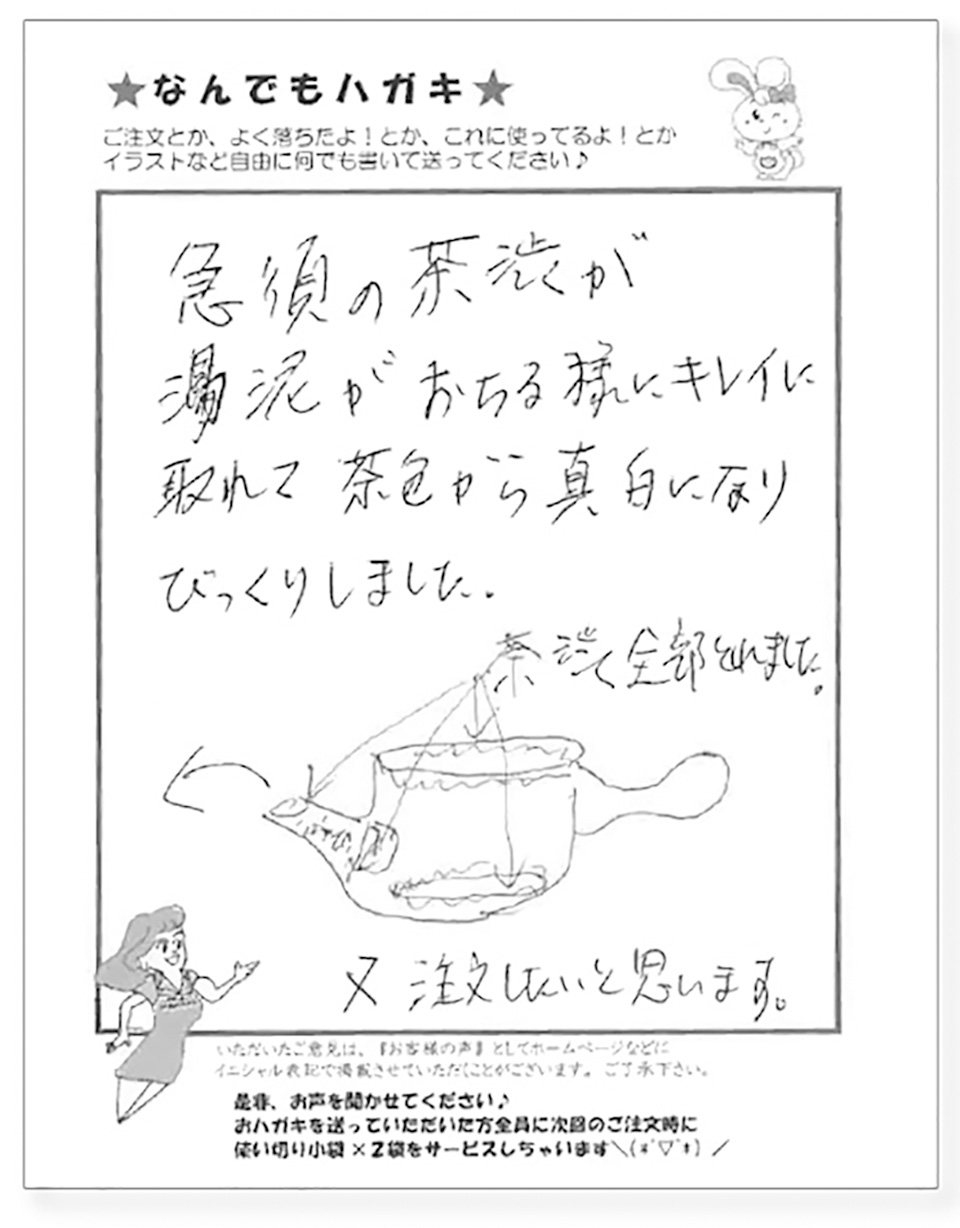 ★なんでもハガキ★
ご注文とか、よく落ちたよ！とか、これに使ってるよ！とか
イラストなど自由に何でも書いて送ってください♪
急須の茶渋が
泥がおちる様にキレイに
取れて茶色から真白になり
びっくりしました.
茶渋全部とれました。
又注文したいと思います。
いただいたご意見は、『お客様の声』としてホームページなどに
イニシャル表記で掲載させていただくことがございます。ご了承下さい。
是非、お声を聞かせてください♪
おハガキを送っていただいた方全員に次回のご注文時に
使い切り小袋×2袋をサービスしちゃいます＼(*´▽`*)／